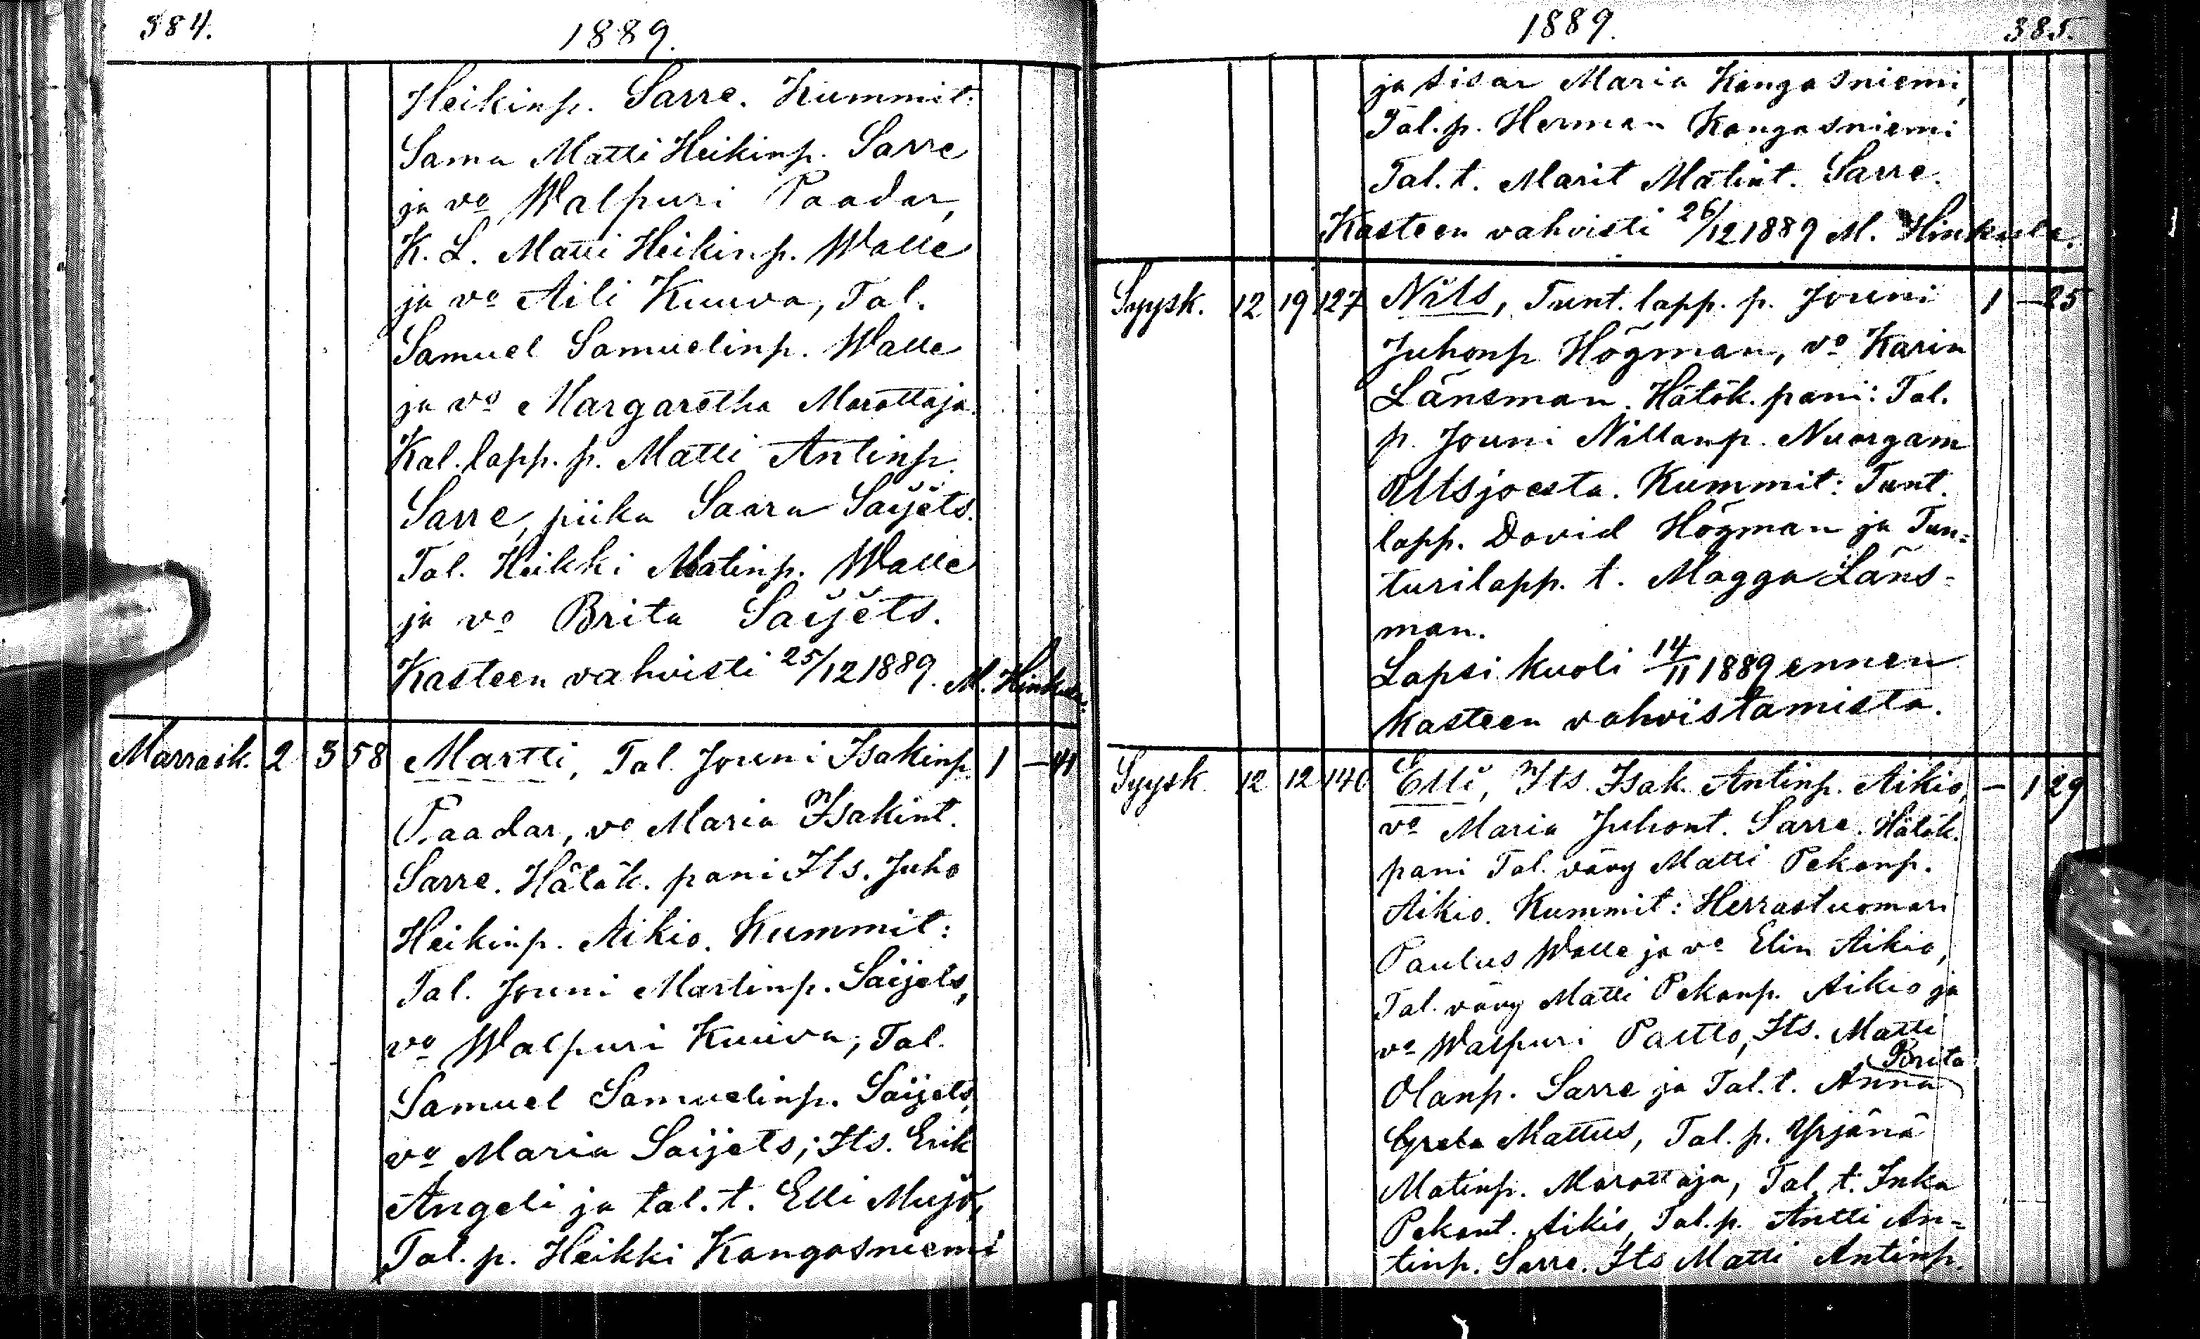 384.
1889.
Heikinp. Sarre. Kummit:
Samu Matti Heikinp. Sarre
ja vo Walpuri Paadar,
K. L. Matti Heikinp. Walle
ja vo Aili Kuuva, Tal.
Samuel Samuelinp. Walle
ja vo Margaretha Morottaja.
Kal. lapp. p. Matti Antinp.
Sarre, piika Saara Saijets.
Tal. Heikki Matinp. Walle
ja vo Brita Saijets.
Kasteen vahvisti 25/12 1889. M. Hinkula.
Marrask. 2 3 58 Martti, Tal. Jouni Isakinp. 1 — 41
Paadar, vo Maria Isakint.
Sarre. Hätäk. pani Its. Juho
Heikinp. Aikio. Kummit:
Tal. Jouni Martinp. Saijets,
vo Walpuri Kuuva, Tal.
Samuel Samuelinp. Saijets,
vo Maria Saijets; Its. Erik
Angeli ja tal. t. Elli Mujo,
Tal. p. Heikki Kangasniemi
1889.
385.
ja sisar Maria Kangasniemi,
Tal. p. Herman Kangasniemi
Tal. t. Marit Matint. Sarre.
Kasteen vahvisti 26/12 1889 M. Hinkula.
Syysk. 12 19 127 Nils, Tunt. lapp. p. Jouni 1 — 25
Juhonp Högman, vo Karin
Länsman. Hätäk. pani: Tal.
p. Jouni Nillanp. Nuorgam
Utsjoesta. Kummit: Tunt.
lapp. David Högman ja Tun=
turilapp. t. Magga Läns-
man.
Lapsi kuoli 14/11 1889 ennen
kasteen vahvistamista.
Syysk. 12 12 146 Elli, Its. Isak. Antinp. Aikio, — 1 29
vo Maria Juhont. Sarre. Hätäk.
pani Tal. vävy Matti Pekanp.
Aikio. Kummit: Herrastuomari
Paulus Walle ja vo Elin Aikio,
Tal. vävy Matti Pekanp. Aikio ja
vo Walpuri Paltto, Its. Matti
Brita
Olanp. Sarre ja Tal. t. Anna
Greta Mattus, Tal. p. Yrjänä
Matinp. Morottaja, Tal. t. Inka
Pekant. Aikio, Tal. p. Antti An=
tinp. Sarre. Its Matti Antinp.